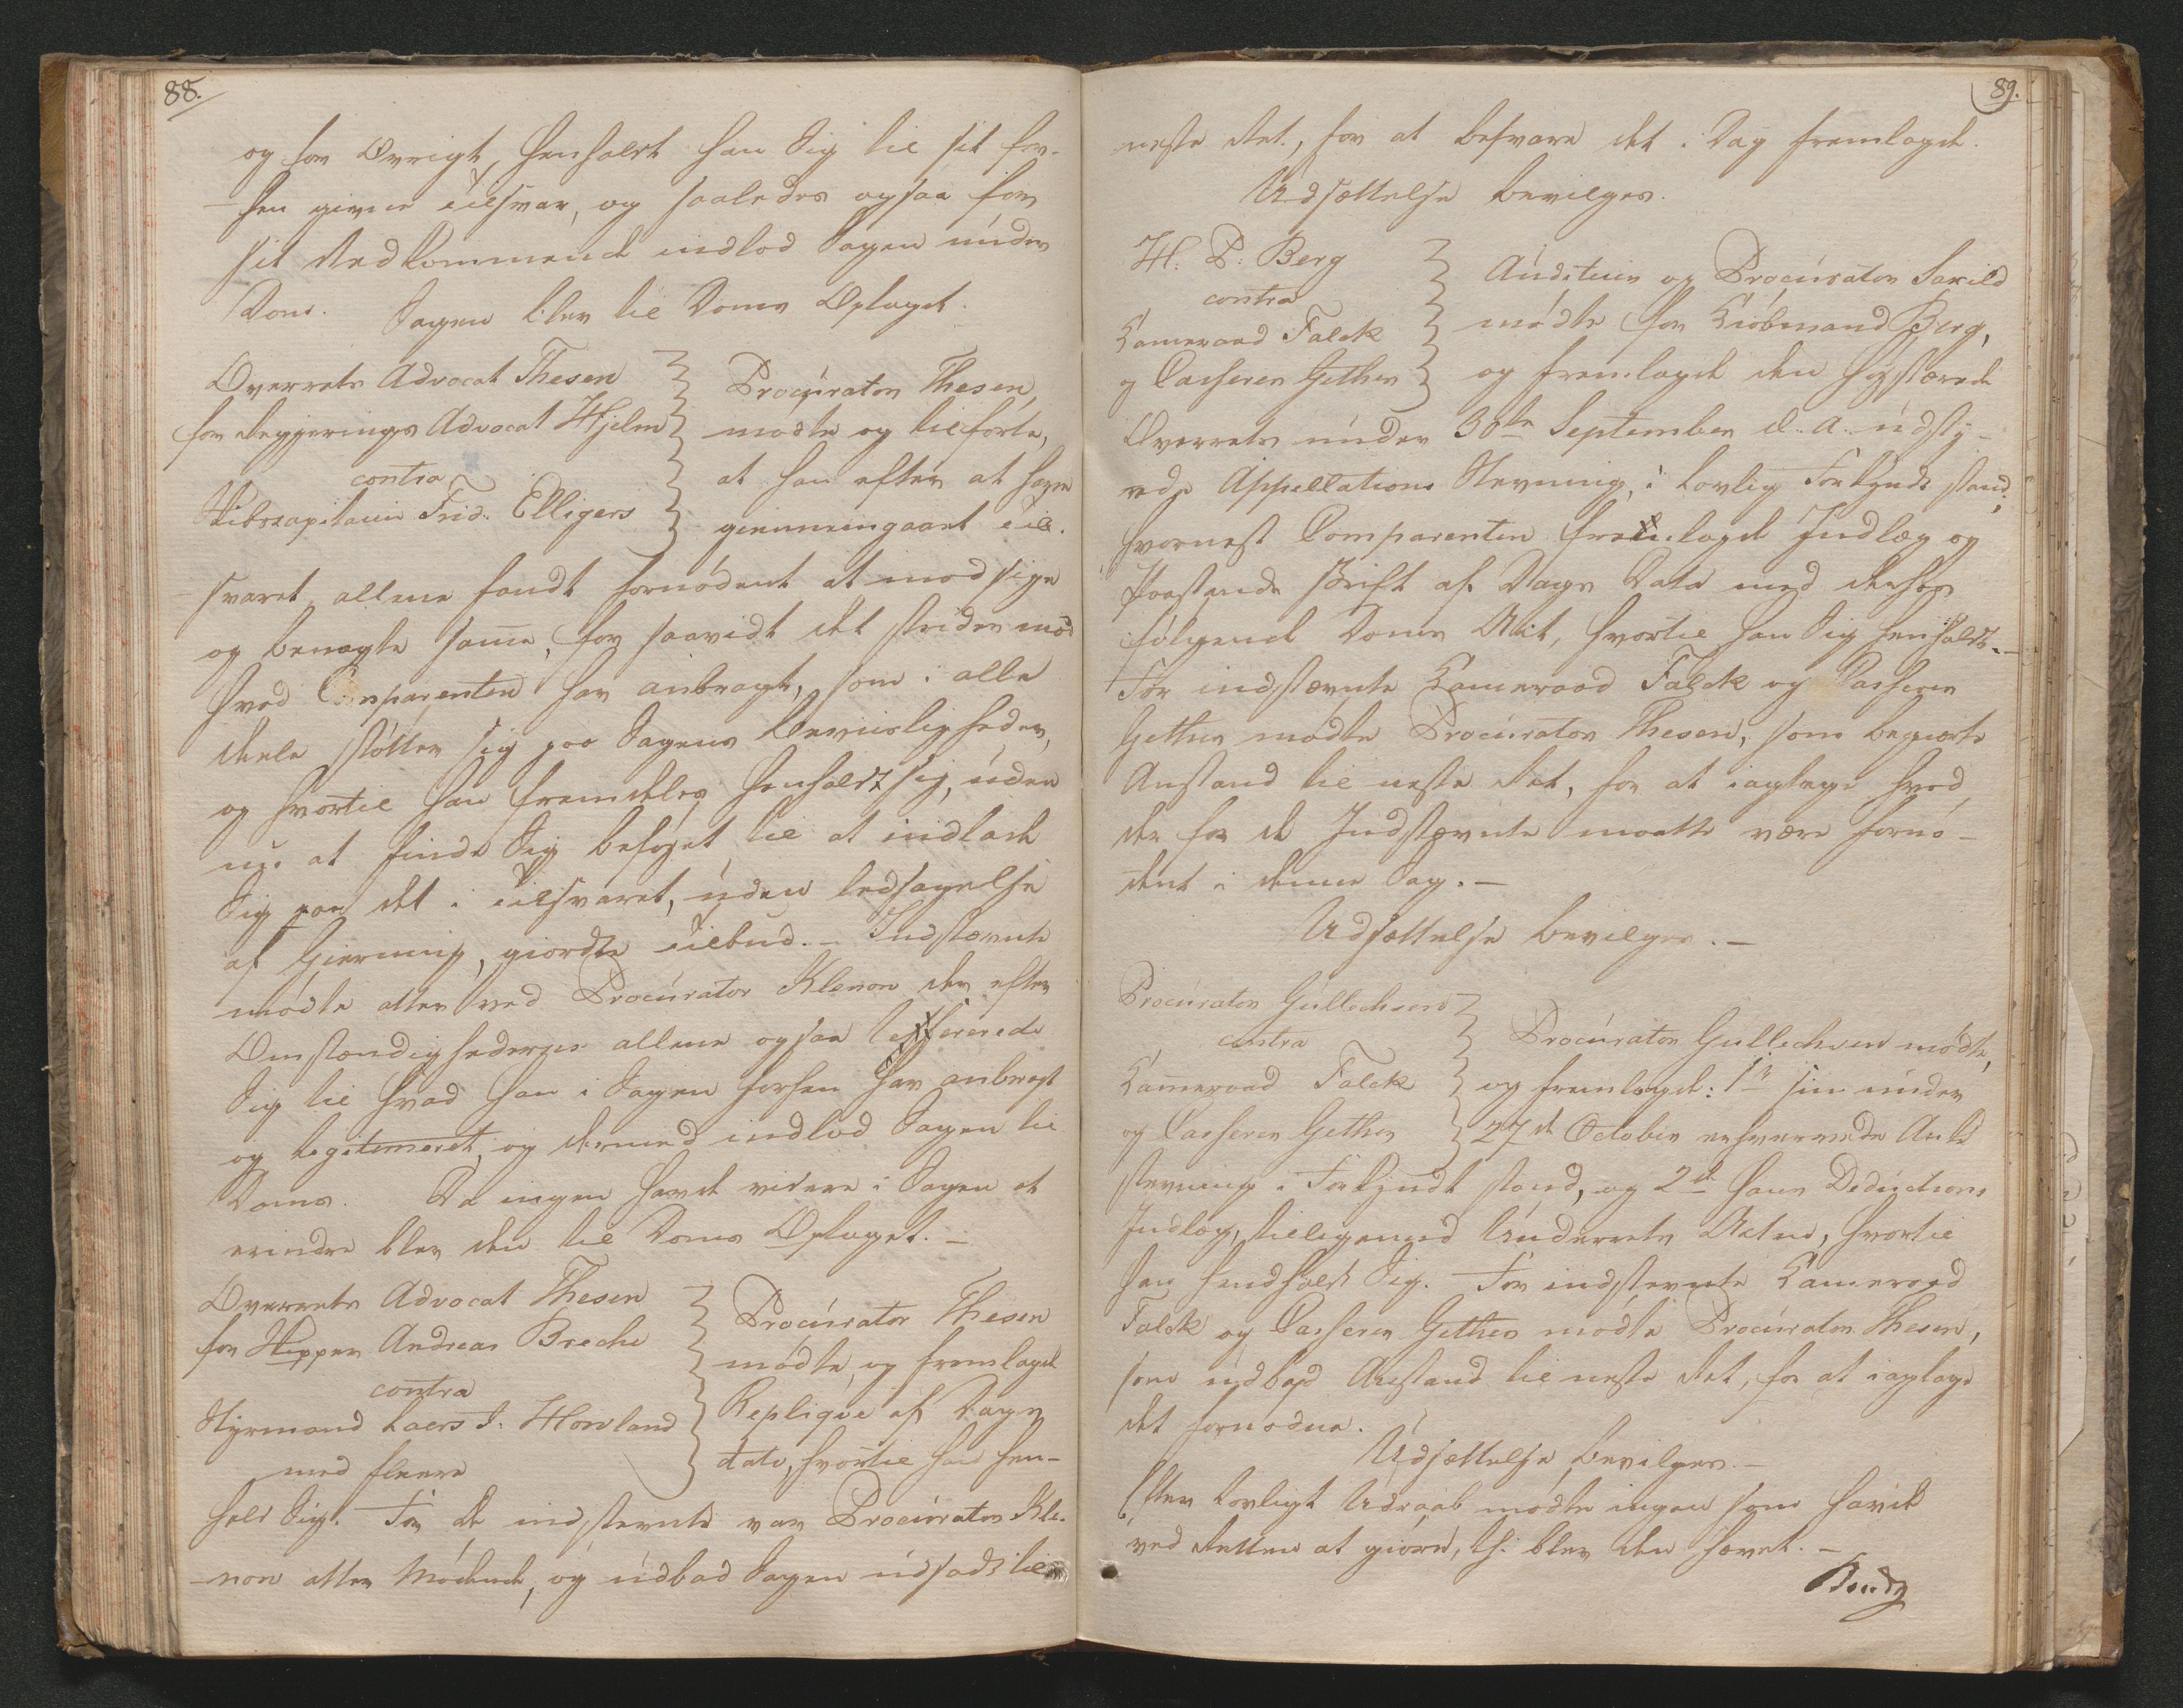 88.
og for Øvrigt, henholdt han Sig til sit for-
hen givne tilsvar, og saaledes ogsaa for
sit Vedkommende indlod Sagen under
Dom. Sagen blev til Doms Optaget.
Overrets Advocat Thesen
for Regjerings Advocat Hjelm
contra
Skibscapitain Frid. Elligers
Procurator Thesen,
mødte og tilførte,
at han efter at have
giennemgaaet til-
svaret allene fandt fornødent at modsige
og benægte samme, for saavidt det strider mod
hvad Comparenten har anbragt, som i alle
deele støtter sig paa Sagens Beviisligheder,
og hvortil han fremdeles henholdt sig, uden
nu at finde Sig beføyet til at indlade
Sig paa det i tilsvaret, uden ledsagelse
af Gierning, giordte tilbud. - Indstævnte
mødte atter ved Procurator Klenow der efter
Omstændighederne allene ogsaa refererede
Sig til hvad han i Sagen forhen har anbragt
og legitimeret, og dermed indlod Sagen til
Doms. Da ingen havde videre i Sagen at
erindre blev den til Doms Optaget. -
Overrets Advocat Thesen
for Skipper Andreas Breche
contra
Styrmand Laers J. Howland
med fleere
Procurator Thesen
mødte, og fremlagde
Replique af Dags
dato, hvortil han hen-
holdt Sig. For de indstevnte var Procurator Kle-
now atter Mødende, og udbad Sagen udsadt til
89.
neste Ret, for at besvare det i Dag fremlagde.
Udsættelse bevilges.
H. P. Berg
contra
Kameraad Falck
og Casserer Gether
Auditeur og Procurator Saxild
mødte for Kiøbmand Berg,
og fremlagde den hos høie
Overrets under 30te September d. A. udsty-
rede Appellations Stevning, i lovlig Forkyndt stand,
hvornest Comparenten fremlagde Indlæg og
Paastands Skrift af Dags Dato med derhos
følgende Doms Act, hvortil han Sig henholdt. -
For indstævnte Kameraad Falck og Casserer
Gether mødte Procurator Thesen, som begierte
Anstand til neste Ret, for at iagtage hvad
der for de Indstævnte maatte være fornø-
dent i denne Sag. -
Udsættelse bevilges. -
Procurator Gullichsen
contra
Kameraad Falck
og Casserer Gether
Procurator Gullichsen mødte,
og fremlagde: 1ste sin under
27de October erhvervede Anke
stevning i Forkyndt stand, og 2de hans Deductions
Indlæg, tilligemed Underrets Acten, hvortil
han hendholdt Sig. For indstevnte Kameraad
Falck og Casserer Gether mødte Procurator Thesen,
som udbad Anstand til neste Ret, for at iagtage
det fornødne.
Udsættelse bevilges. -
Efter Lovligt Udraab mødte ingen som havde
ved Retten at giøre, thi blev den hævet. -